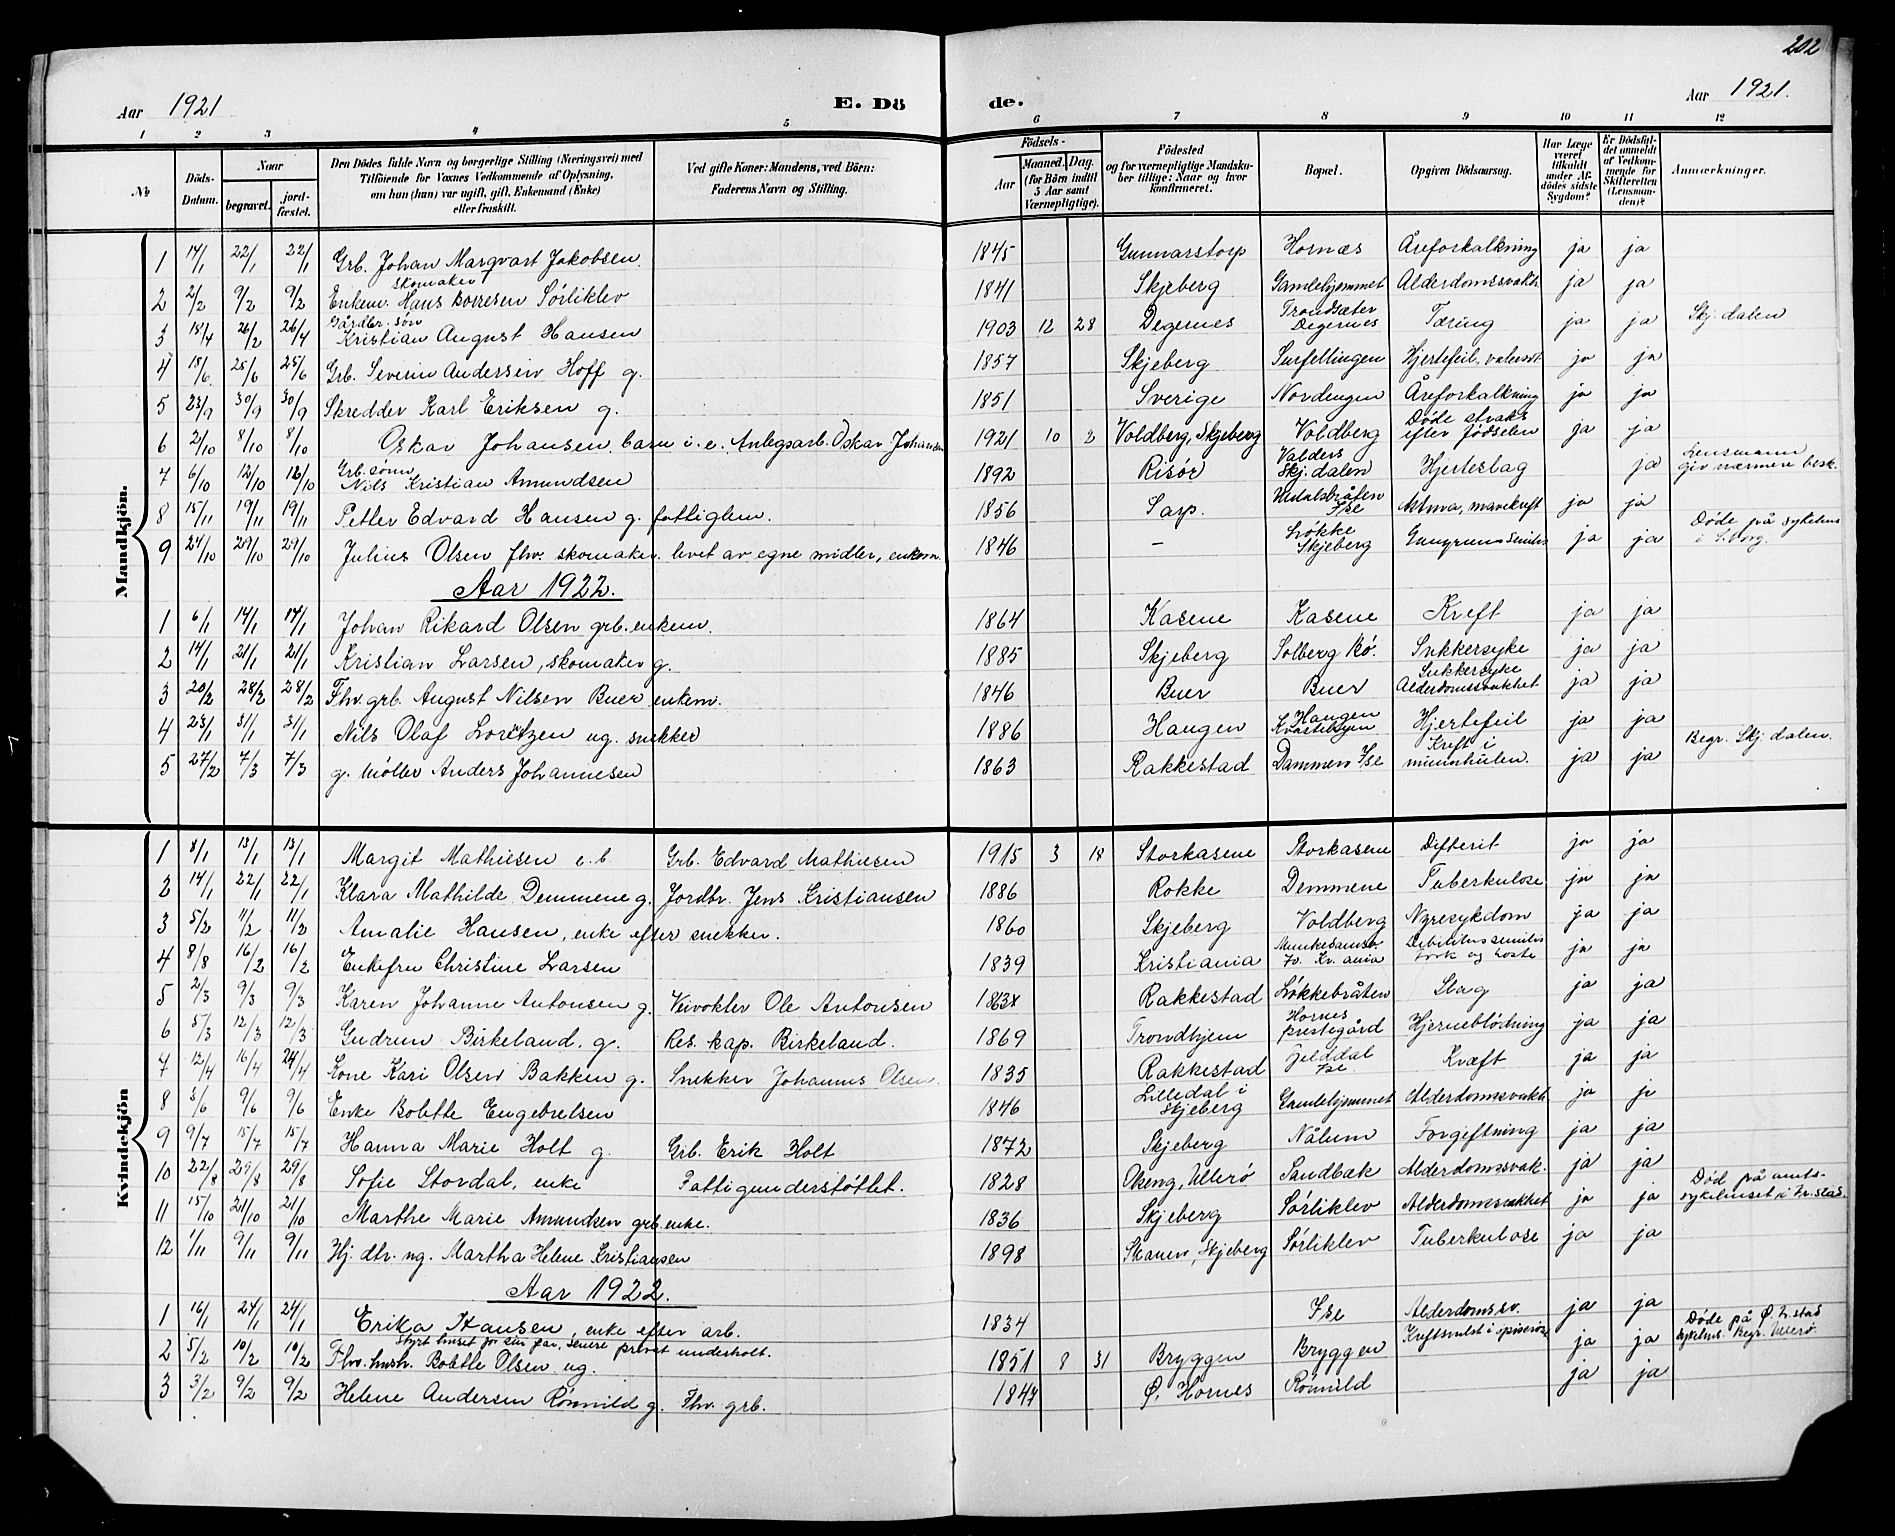 202
Aar 1921
E. Dö
de.
Aar 1921.
1 2 3 4 5 6 7 8 9 10 11 12
No
Döds-Datum.
Naar
begravet.
jordfæstet.
Den Dödes fulde Navn og borgerlige Stilling (Næringsvei) med
Tilföiende for Voxnes Vedkommende af Oplysning,
om hun (han) var ugift, gift, Enkemand (Enke)
eller fraskilt.
Ved gifte Koner: Mandens, ved Börn:
Faderens Navn og Stilling.
Födsels-
Aar
Maaned. Dag.
(for Börn indtil
5 Aar samt
Værnepligtige).
Födested
og for værnepligtige Mandskaber tillige: Naar og hvor
konfirmeret.
Bopæl.
Opgiven Dödsaarsag.
Har Læge
været
tilkaldt
under Afdödes sidste
Sygdom?
Er Dödsfaldet anmeldt
af Vedkommende for
Skifteretten
(Lensmanden)?
Anmærkninger.
Mandkjön.
1 14/1 22/1 22/1 Grb. Johan Marqvart Jakobsen. 1845 Gunnarstorp Hornæs Åreforkalkning ja ja
2 2/2 9/2 9/2 Enkem. skomaker Hans Borresen Sørliklev 1841 Skjeberg Gamlehjemmet Alderdomssvakh. ja ja
3 18/4 26/2 26/4 Gårdbr. søn Kristian August Hansen 1903 12 28 Degernes Trondsæter Degernes Tæring ja ja Skj. dalen
4 18/6 25/6 25/6 Grb. Severin Andersen Hoff g. 1857 Skjeberg Surfellingen Hjertefeil, ja ja
5 23/9 30/9 30/9 Skredder Karl Eriksen g. 1851 Sverige Nordengen Åreforkalkning ja ja
6 2/10 8/10 8/10 Oskar Johansen, barn i. e. Anlegsarb. Oskar Johansen 1921 10 2 Voldberg, Skjeberg Voldberg Døde straks efter fødselen ja ja
7 6/10 12/10 12/10 Grb. sønn Nils Kristian Amundsen 1892 Risør Valders Skj. dalen Hjerteslag ja Lensmann giv nærmere besk.
8 15/11 19/11 19/11 Petter Edvard Hansen g. fattiglem. 1856 Sarp. Ise Astma, mavekreft ja ja
9 24/10 29/10 29/10 Julius Olsen fhv. skomaker. levet av egne midler, enkem. 1846 — Løkke Skjeberg ja ja Døde på sykehus i S.borg.
Aar 1922.
1 6/1 14/1 14/1 Johan Rikard Olsen grb. enkem. 1864 Kasene Kasene Kreft ja ja
2 14/1 21/1 21/1 Kristian Larsen, skomaker g. 1885 Skjeberg Solberg Bø. Sukkersyke ja ja
3 20/2 28/2 28/2 Fhv. grb. August Nilsen Buer enkem. 1846 Buer Buer Sukkersyke Alderdomssvakhet ja ja
4 23/1 31/1 31/1 Nils Olaf Lorentzen ug. snekker 1886 Haugen Haugen Hjertefeil ja ja
5 27/2 7/3 7/3 g. Møller Anders Johannesen 1863 Rakkestad Dammen Ise Kreft i munnhulen. ja ja Begr. Skj. dalen.
Kvindekjön
1 8/1 13/1 13/1 Margit Mathiesen e. b Grb. Edvard Mathiesen 1915 3 18 Storkasene Storkasene Difterit ja ja
2 14/1 22/1 22/1 Klara Mathilde Demmene g. Jordbr. Jens Kristiansen 1886 Rokke Demmene Tuberkulose ja ja
3 5/2 11/2 11/2 Amalie Hansen, enke efter snekker. 1860 Skjeberg Voldberg Nyresykdom ja ja
4 8/8 16/2 16/2 Enkefru Christine Larsen 1839 Kristiania Kr. ania ja ja
5 2/3 9/3 9/3 Karen Johanne Antonsen g. Veivokter Ole Antonsen Rakkestad Løkkebråten Slag ja ja
6 5/3 12/3 12/3 Gudrun Birkeland. g. Res. kap. Birkeland. 1869 Trondhjem Hornes prestegård Hjerneblödning ja ja
7 12/4 16/4 24/4 Kone Kari Olsen Bakken g. Snekker Johannes Olsen. 1835 Rakkestad Jelddal Ise Kræft ja ja
8 3/6 9/6 9/6 Enke Bolette Engebretsen 1846 Lilledal i Skjeberg Gamlehjemmet Alderdomssvakh. ja ja
9 9/7 15/7 15/7 Hanna Marie Holt g. Grb. Erik Holt 1872 Skjeberg Nålum Forgiftning ja ja
10 22/8 29/8 29/8 Sofie Stordal, enke Fattigunderstøttet. 1828 Økeng, Ullerø Sandbæk Alderdomssvak. ja ja Død på amtssykehuset i Fr.stad.
11 15/10 21/10 21/10 Marthe Marie Amundsen grb. enke. 1836 Skjeberg Sørliklev Alderdomssvakhet ja ja
12 1/11 9/11 9/11 Hj. dtr. ug. Martha Helene Kristiansen 1898 Skjeberg Sørliklev Tuberkulose ja ja
Aar 1922.
1 16/1 24/1 24/1 Erika Hansen, enke efter arb. 1834 Ise Alderdomssv. ja ja
Styrt huset for sin far, senere privat underholt.
2 5/2 10/2 10/2 Fhv. hush. Bolette Olsen ug. 1851 8 31 Bryggen Bryggen Kreftsvulst i spiserör ja ja Døde på Fr. stad sykehus. Begr. Ullerø
3 3/2 9/2 9/2 Helene Andersen Rømnild g. Fhv. grb. 1847 Ø. Hornes Rømnild ja ja